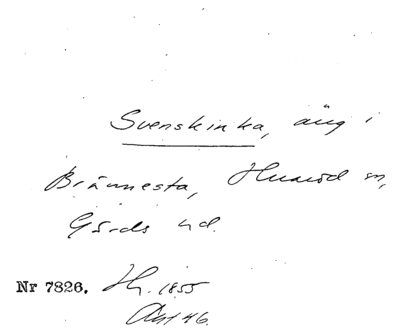 Svenskinka, äng i
Brännesta, Huaröd sn,
Gärds hd.
Nr 7826. Hy. 1855
Akt 46.